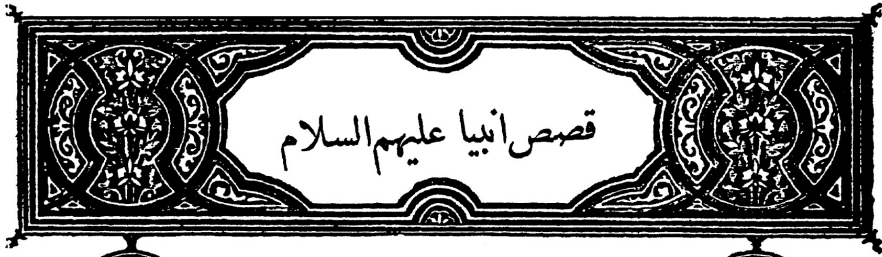 قصص انبيا عليهم السلام